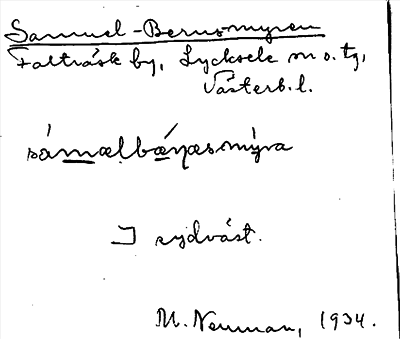 Samuel-Bernsmyren
Falträsk by, Lycksele m o. tg,
Västerb. l.
sámælbæ̀ɳasmýra
I sydväst.
M. Neuman, 1934.